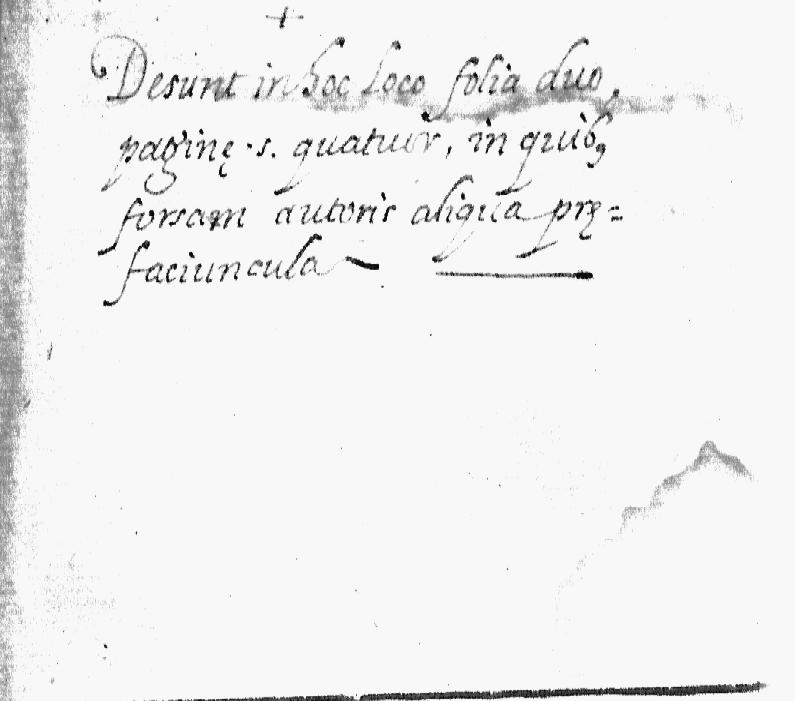 +
Desunt in hoc loco folia duo,
paginę .s. quatuor, in quibꝯ
forsam autoris aliqua prę=
faciuncula